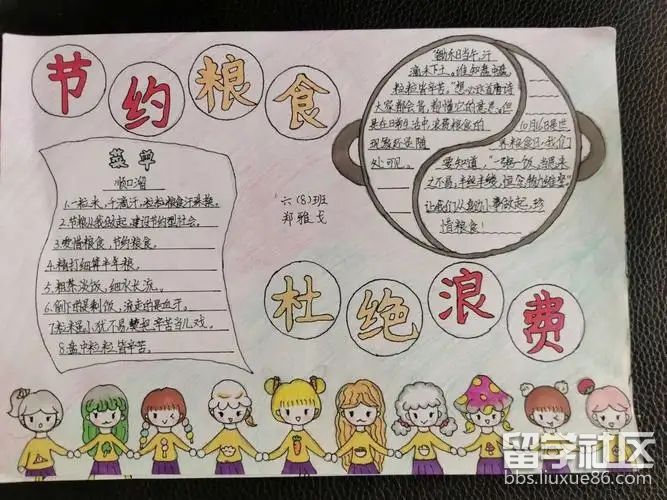 节约粮食
菜单
顺口溜
1.一粒米,千滴汗,粒粒粮食汗来换。
2.节粮从我做起,建设节约型社会。
3.爱惜粮食,节约粮食。
4.精打细算半年粮。
5.粗茶淡饭,细水长流。
6.倒下的是剩饭,流走的是血汗。
7.粒米虽小犹不易,莫把辛苦当儿戏。
8.盘中粒粒皆辛苦。
六(8)班
郑雅戈
"锄禾日当午,汗
滴禾下土。谁知盘中餐,
粒粒皆辛苦。"想必这首唐诗
大家都会背,都懂它的意思。但
是在日常生活中,浪费粮食的
现象还是随
处可见。
10月16日是世
界粮食日,我们
要知道,"一粥一饭,当思来
之不易,半丝半缕,恒念物力维艰"
让我们从身边小事做起,珍
惜粮食!
杜绝浪费
留学社区
bbs.liuxue86.com